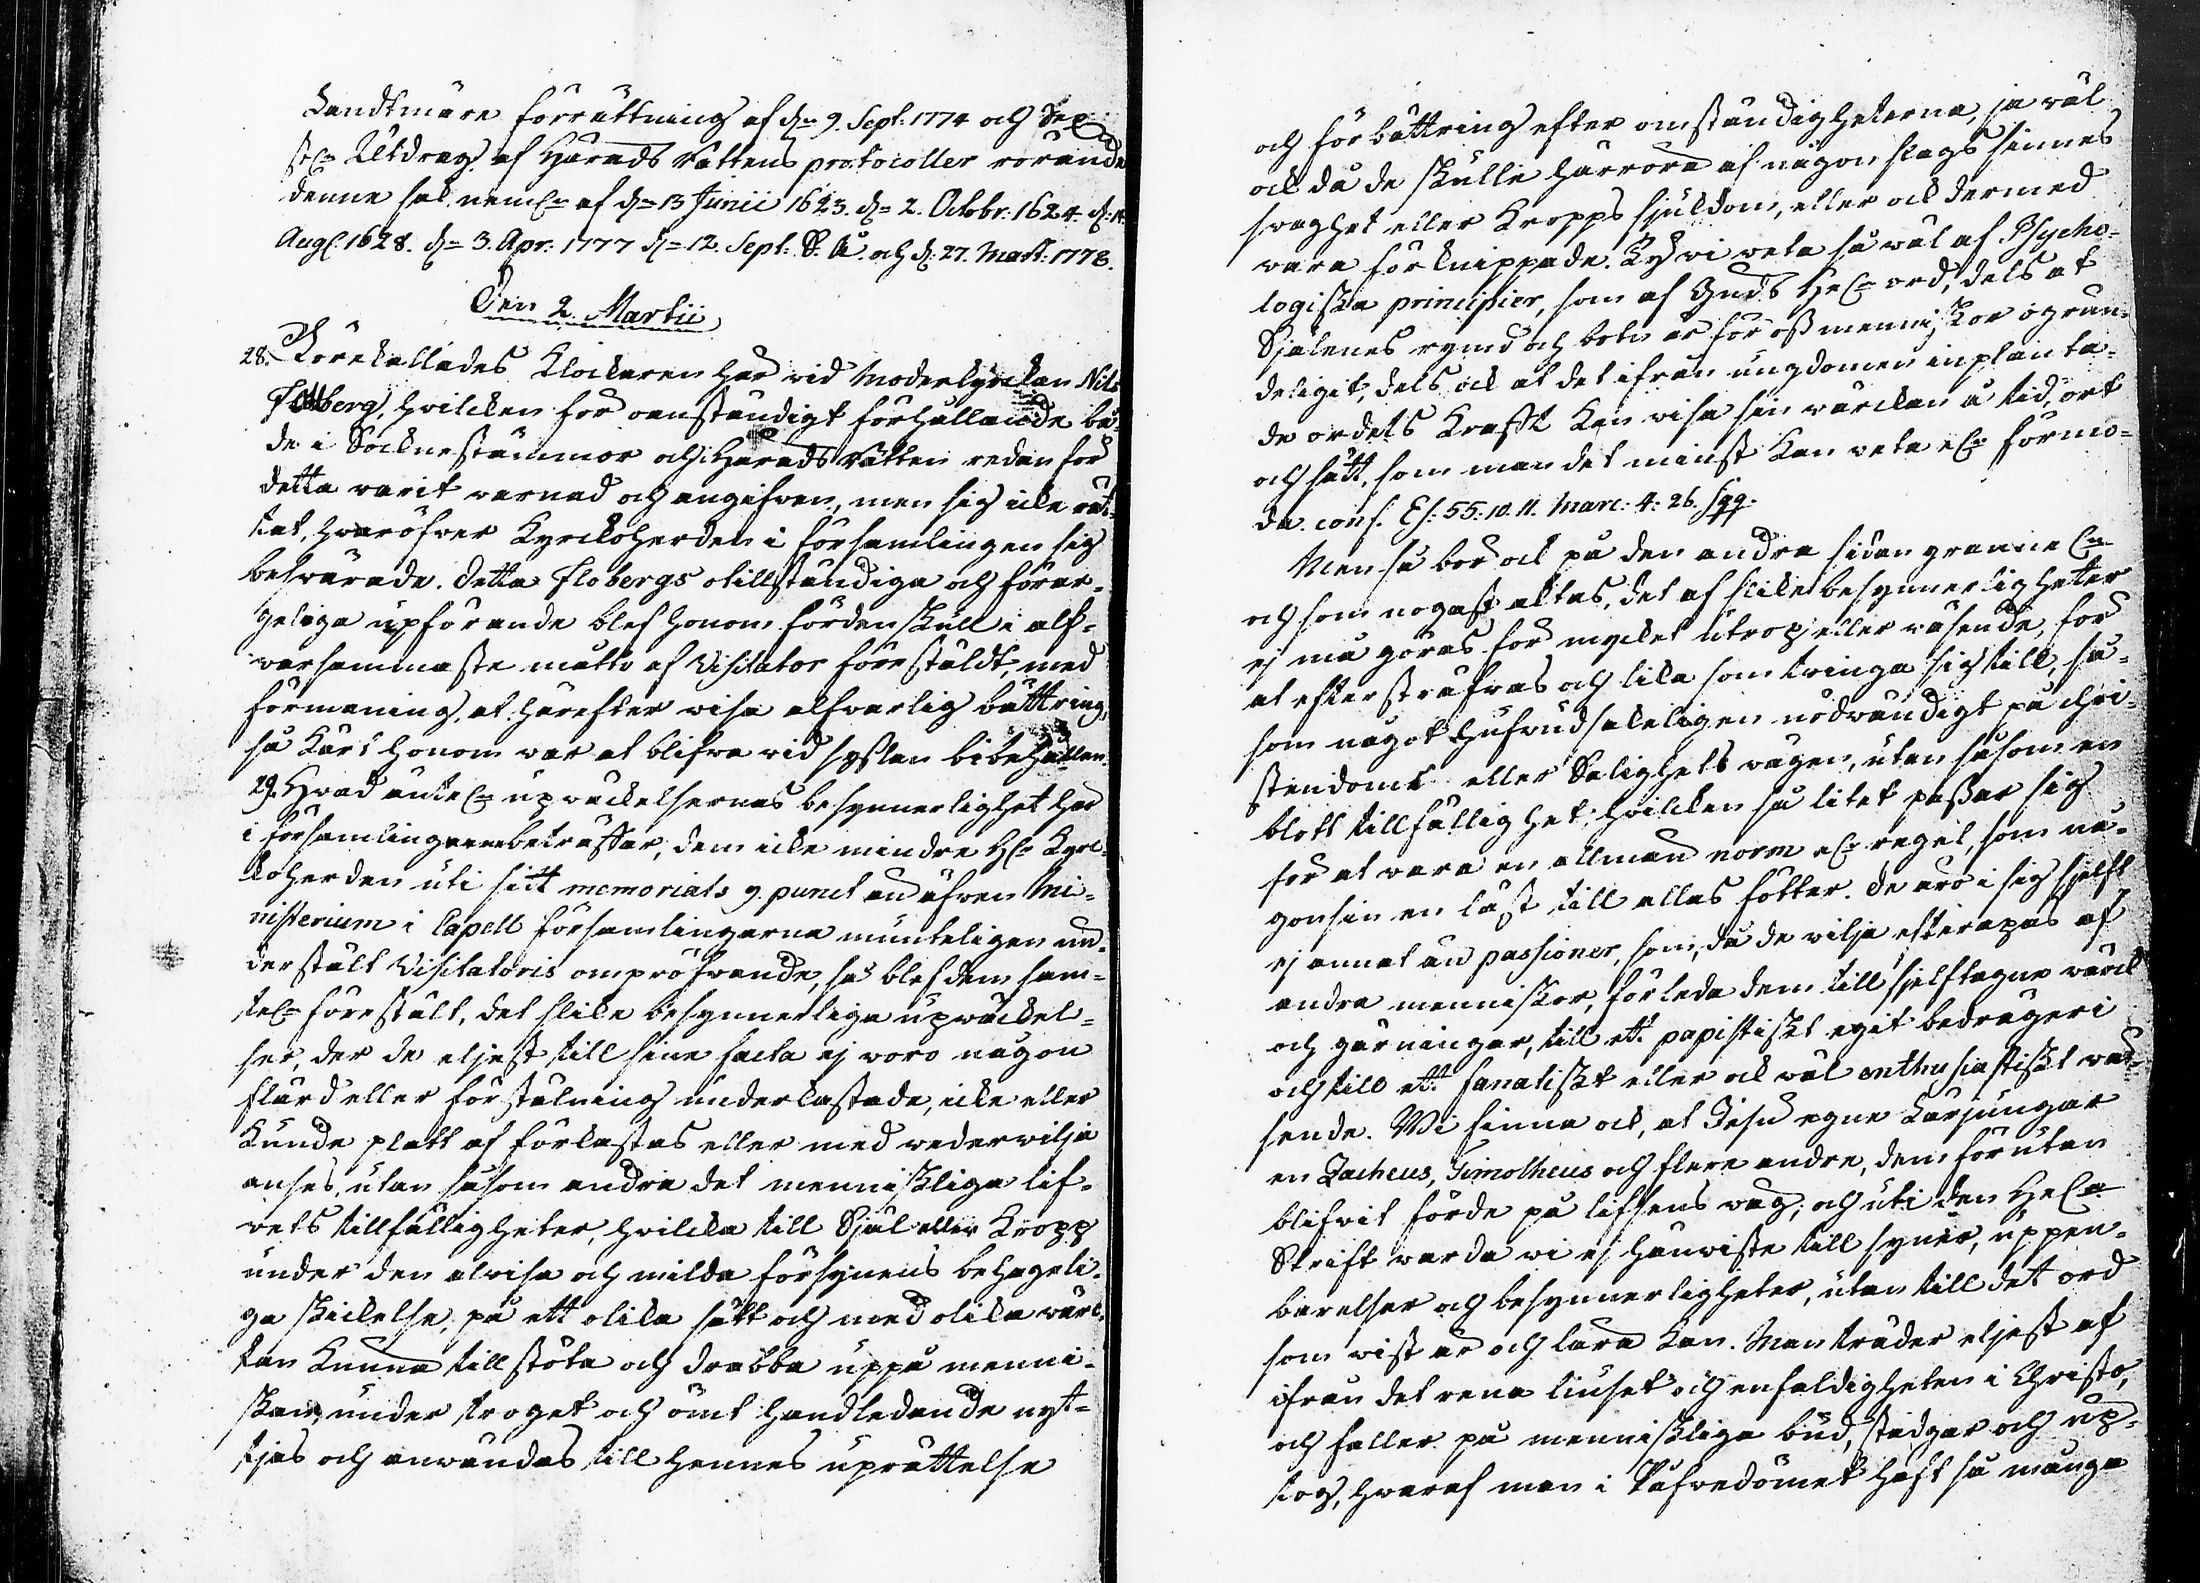 Landtmäre förrättning af d:n 9. Sept: 1774 och sex
st:n Utdrag af Härads Rättens protocoller rörande
denna sak neml:n af d:n 13 Junii 1623. d:n 2. Octobr. 1624. d: 14.
Aug: 1628. d:n 3. Apr. 1777 d:n 12. Sept: S. A. och d: 27. Mart: 1778.
Den 2. Martii
28. Förekallades Klockaren här vid Moderkyrckan Nils
Floberg, hvilcken för oanständigt förhållande bå-
de i Socknestämmor och Härads Rätten redan för
detta varit varnad och angifven, men sig icke rät-
tat, hvaröfver Kyrckoherden i församlingen sig
besvärade. Detta Flobergs otillständiga och förar-
geliga upförande blef honom fördenskull i alf-
varsammaste måtto af Visitator förestäldt, med
förmaning, at härefter visa alfvarlig bättring,
så kärt honom var at blifva vid sysslan bibehållen.
29. Hvad andel:n upväckelsernas besynnerlighet här
i församlingarne beträffar, dem icke mindre H:r Kyrc-
koherden uti sitt memorials 9. punct än äfven Mi-
nisterium i Capell församlingarna munteligen un-
derstält Visitatoris ompröfvande, så blef dem sam-
tel:n förestält, det slika besynnerliga upväckel-
ser, der de eljest till sine facta ej voro någon
flärd eller förstälning underkastade, icke eller
kunde platt af förkastas eller med vedervilja
anses, utan såsom andra det menniskliga lif-
vets tillfälligheter, hvilcka till Själ eller Kropp
under den alvisa och milda försynens behageli-
ga skickelse, på ett olika sätt och med olika värc-
kan kunna tillstöta och drabba uppå menni-
skan, under troget och ömt handledande nyt-
tjas och användas till hennes uprättelse
och förbättring efter omständigheterna, ja väl
ock då de skulle härröra af någon slags sinnes
svaghet eller Kropps sjukdom, eller ock dermed
vara förknippade. Ty vi veta så väl af Psycho-
logiska principier, som af Guds Hel:a ord, dels at
Själenes rymd och botn är för oss menniskor ogrun-
deligit, dels ock at det ifrån ungdomen inplanta-
de ordets Krafft kan visa sin värckan å tid, ort
och sätt, som man det minst kan veta el:r förmo-
da. conf. Es: 55: 10. 11. Marc: 4: 26. sqq.
Men så bör ock på den andra sidan grannel:n
och som nogast aktas, det af slika besynnerligheter
ej må göras för mycket utrop eller väsende, för
at eftersträfvas och lika som tvinga sig till, så-
som något hufvudsakeligen nödvändigt på chri-
stendoms eller Salighets vägen, utan såsom en
blott tillfällighet, hvilcken så litet passar sig
för at vara en allmän norm el:r regel, som nå-
gonsin en läst till allas fötter. De äro i sig sjelft
ej annat än passioner, som, då de vilja efterapas af
andra menniskor, förleda dem till sjelftagne värck
och gärningar, till ett papistiskt egit bedrägeri
och till ett fanatiskt eller ock väl enthusiastiskt vä-
sende. Wi finna ock, at Jesu egne Lärjungar
en Zacheus, Timotheus och flere andre, dem förutan
blifvit förde på lifsens väg; och uti den Hel:a
Skrift varda vi ej hänviste till syner, uppen-
barelser och besynnerligheter, utan till det ord
som vist är och lära kan. Man träder eljest af
ifrån det rena liuset och enfaldigheten i Christo,
och faller på menniskliga bud, stadgar och up-
tog, hvaraf man i Påfvedömet haft så många